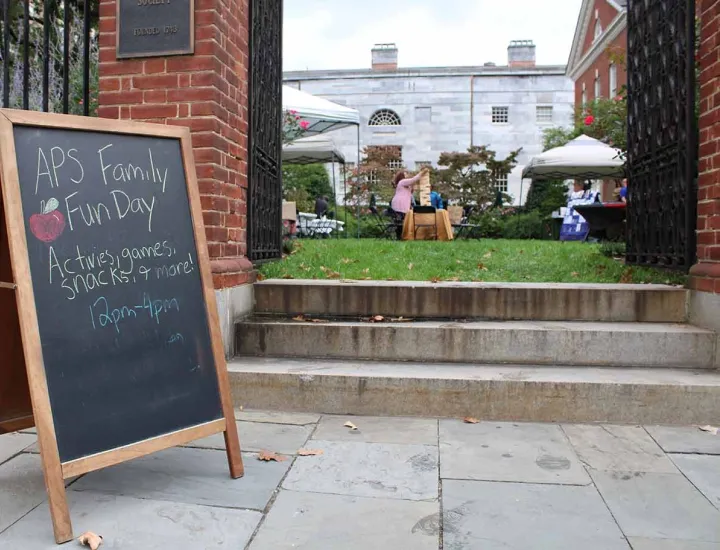 SOCIETY
FOUNDED 1743
APS Family
Fun Day
Activies, games,
snacks, & more!
12pm-4pm